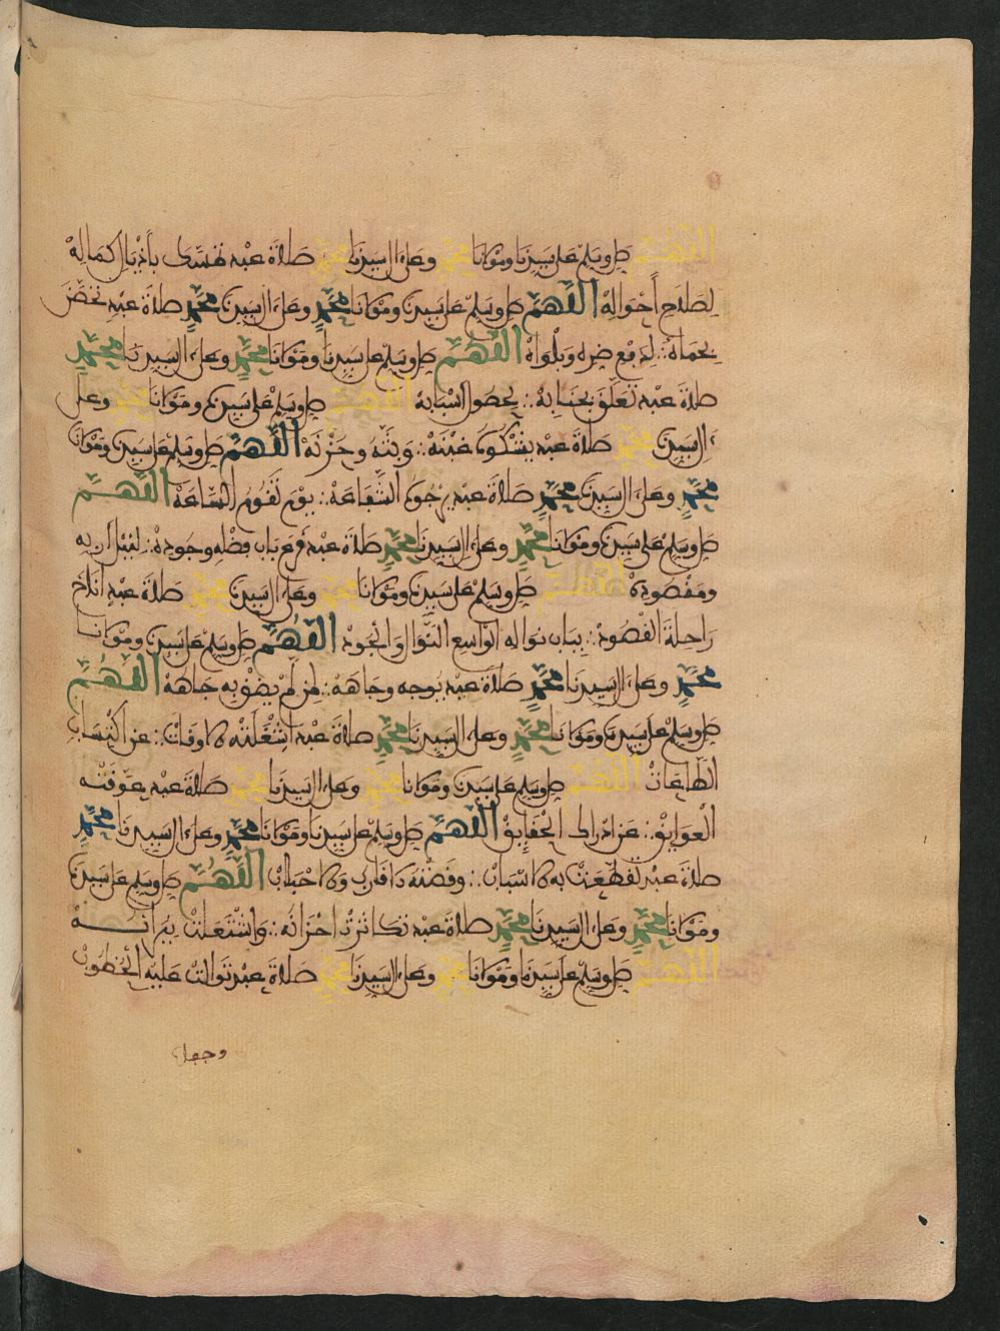 اللهم صل وسلم على سيدنا ومولانا محمد وعلى ءال سيدنا محمد صلاة عبد تمسك بأذيال كماله
لصلاح أحواله اللهم صل وسلم على سيدنا ومولانا محمد وعلى ءال سيدنا محمد صلاة عبد تحصن
بحماه لدفع ضره وبلواه اللهم صل وسلم على سيدنا ومولانا محمد وعلى ءال سيدنا محمد
صلاة عبد تعلق بجنابه لحصول أسبابه اللهم صل وسلم على سيدنا ومولانا محمد وعلى
ءال سيدنا محمد صلاة عبد يشكو غبنه وبثه وحزنه اللهم صل وسلم على سيدنا ومولانا
محمد وعلى ءال سيدنا محمد صلاة عبد يرجو الشفاعة يوم تقوم الساعة اللهم
صل وسلم على سيدنا ومولانا محمد وعلى ءال سيدنا محمد صلاة عبد قرع باب فضله وجوده لنيل
ومقصوده اللهم صل وسلم على سيدنا ومولانا محمد وعلى ءال سيدنا محمد صلاة عبد أناخ
راحلة القصود بباب نواله الواسع النوال والجود اللهم صل وسلم على سيدنا ومولانا
محمد وعلى ءال سيدنا محمد صلاة عبد بوجه وجاهه لمن لم يضق به جاهه اللهم
صل وسلم على سيدنا ومولانا محمد وعلى ءال سيدنا محمد صلاة عبد أشغلته الاوقات عن اكتساب
الطاعات اللهم صل وسلم على سيدنا ومولانا محمد وعلى ءال سيدنا محمد صلاة عبد عوقته
العوايق عن ادراك الحقايق اللهم صل وسلم على سيدنا ومولانا محمد وعلى ءال سيدنا محمد
صلاة عبد تقطعت به الاسباب ورفضته الاقارب والاحباب اللهم صل وسلم على سيدنا
ومولانا محمد وعلى ءال سيدنا محمد صلاة عبد تكاثرت احزانه واشتعلت نيرانه
اللهم صل وسلم على سيدنا ومولانا محمد وعلى ءال سيدنا محمد صلاة عبد توالت عليه الخطوب